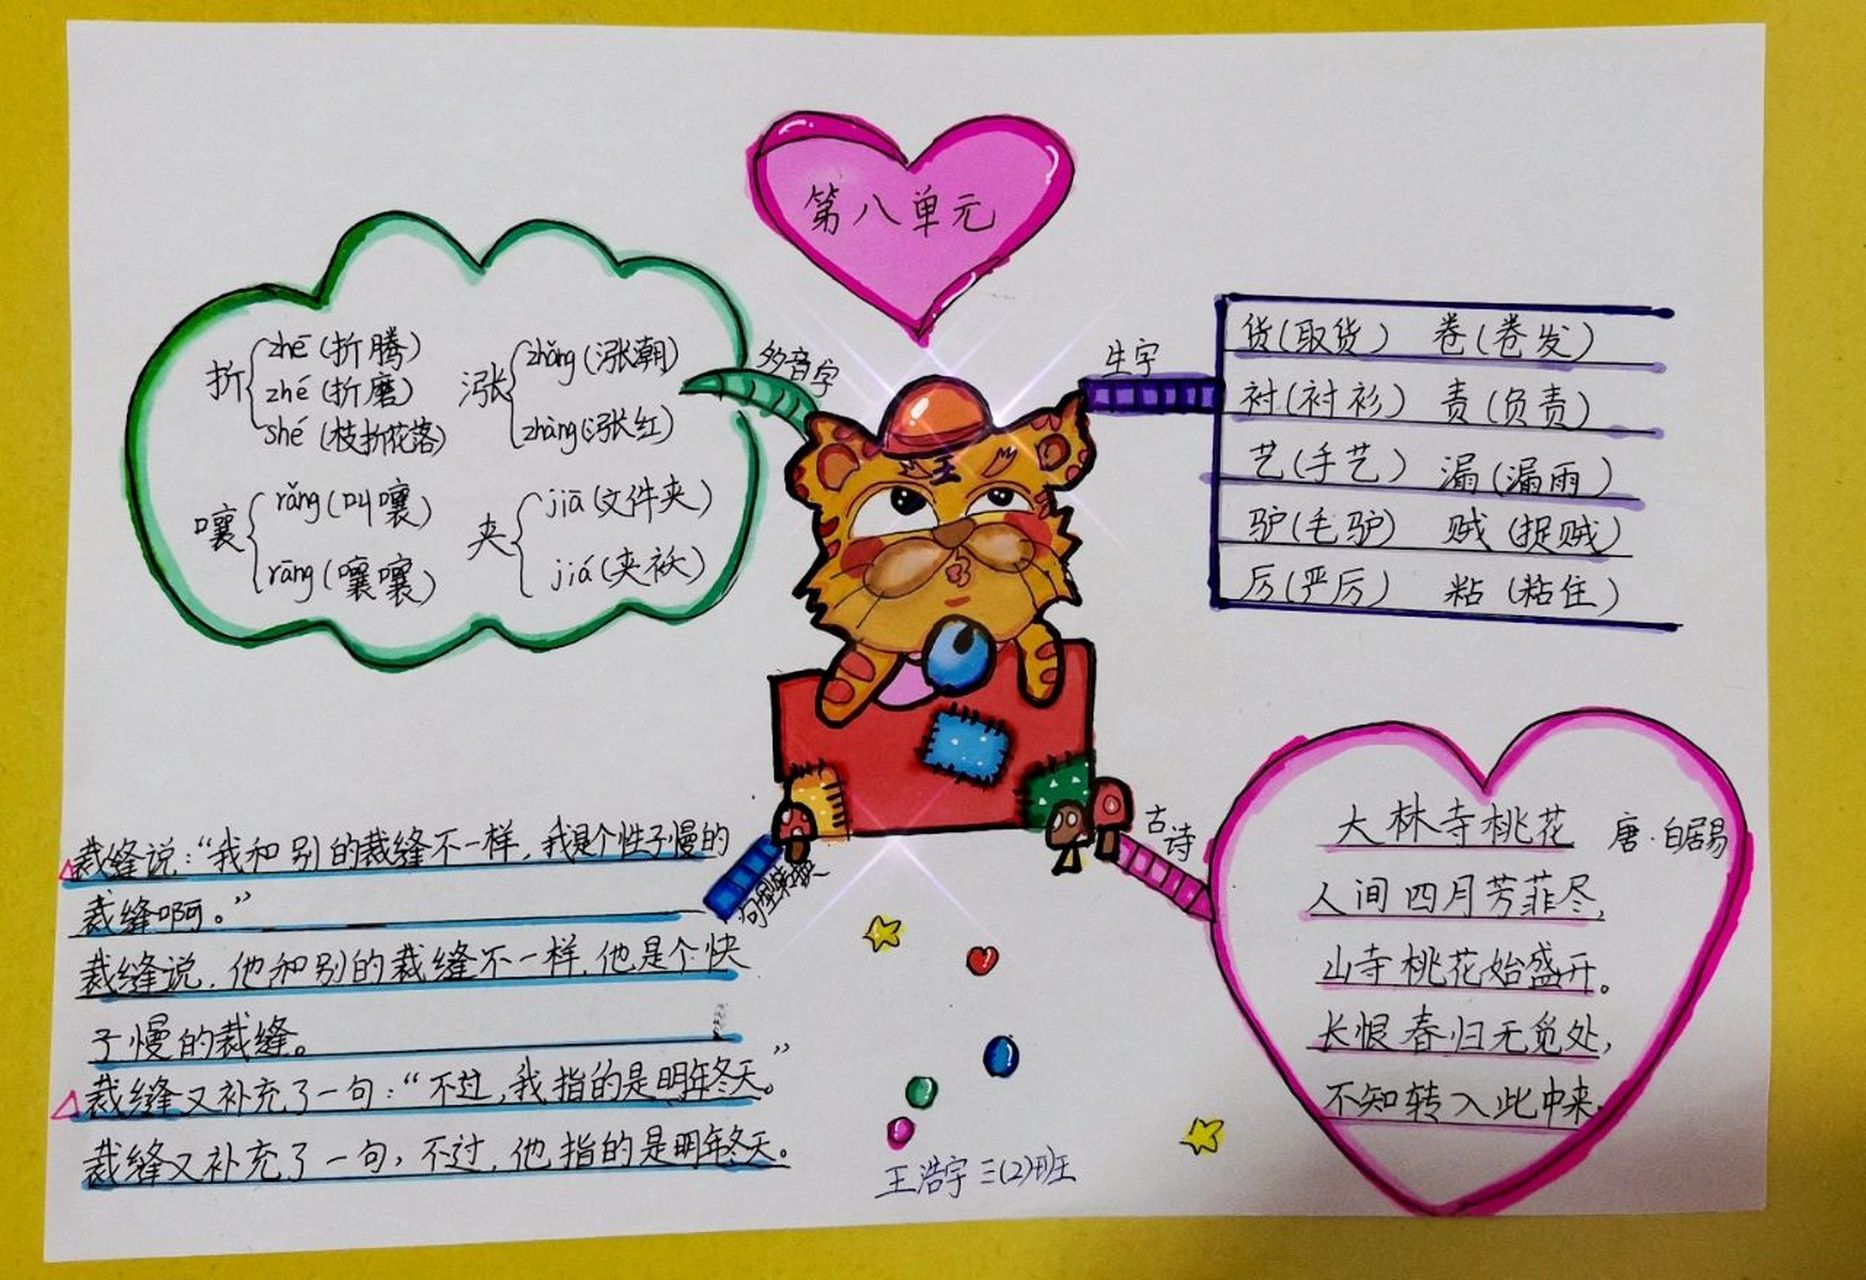 第八单元
多音字
折
zhē(折腾)
zhé(折磨)
shé(枝折花落)
涨
zhǎng(涨潮)
zhàng(涨红)
嚷
rǎng(叫嚷)
rāng(嚷嚷)
夹
jiā(文件夹)
jiá(夹袄)
生字
货(取货) 卷(卷发)
衬(衬衫) 责(负责)
艺(手艺) 漏(漏雨)
驴(毛驴) 贼(捉贼)
厉(严厉) 粘(粘住)
句型转换
裁缝说:“我和别的裁缝不一样,我是个性子慢的
裁缝啊。”
裁缝说,他和别的裁缝不一样,他是个快
子慢的裁缝。
裁缝又补充了一句:“不过,我指的是明年冬天。”
裁缝又补充了一句,不过,他指的是明年冬天。
古诗
大林寺桃花 唐·白居易
人间四月芳菲尽,
山寺桃花始盛开。
长恨春归无觅处,
不知转入此中来.
王浩宇 三(2)班